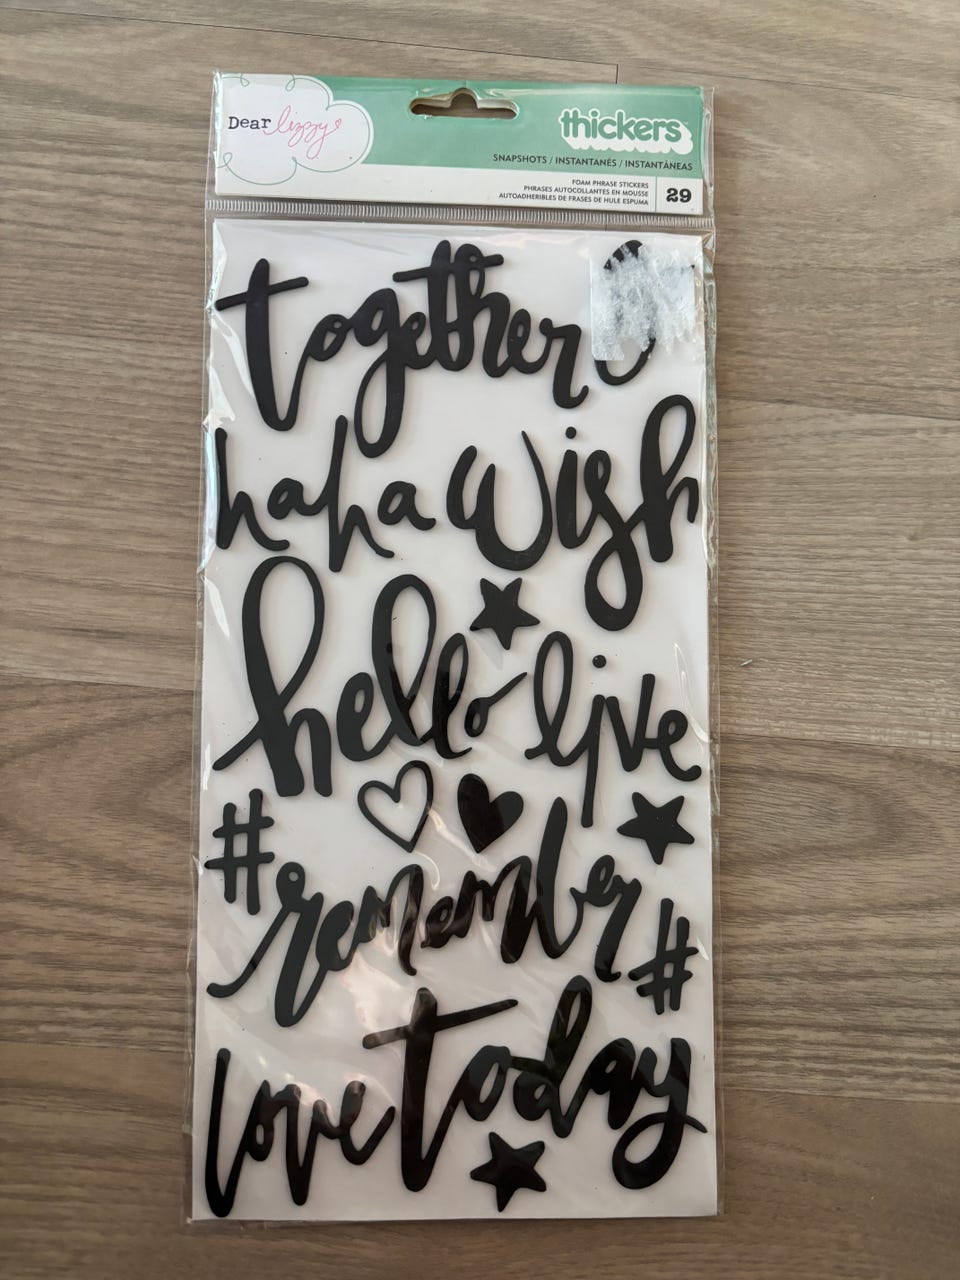 Dear lizzy
thickers
SNAPSHOTS / INSTANTANÉS / INSTANTÁNEAS
FOAM PHRASE STICKERS
PHRASES AUTOCOLLANTES EN MOUSSE
AUTOADHERIBLES DE FRASES DE HULE ESPUMA
29
together
haha wish
hello live
#
remember
#
love today